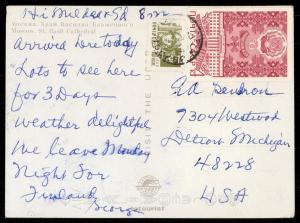 Hi Mildred & Ed
Москва. Храм Василия Блаженного
Moscow. St. Basil Cathedral
Arrived here today
Lots to see here
for 3 Days
Weather delightful
We leave Monday
Night for
Finland
George
VISIT THE USSR
Intourist
Ed Gendron
7304 Westwood
Detroit Michigan
48228
USA